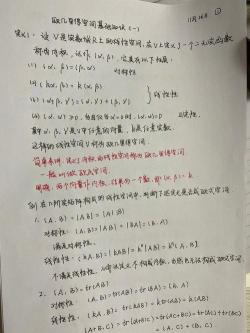 欧几里得空间基础知识(一)
11月26日 ①
定义1. 设V是实数域R上的线性空间,在V上定义了一个二元实函数
称为内积,记作(α,β),它具有以下性质:
(1) (α,β)=(β,α) 对称性
(2) (kα,β)=k(α,β)
(3) (α+β,γ)=(α,γ)+(β,γ) } 线性性
(4) (α,α)≥0,当且仅当α=0时,(α,α)=0
其中α,β,γ是V中任意的向量,k是任意实数,
这样的线性空间V称为欧几里得空间.
简单来讲,定义了内积的线性空间称为欧几里得空间.
一般叫做欧式空间
例 在n阶实矩阵构成的线性空间中,判断下述定义是否成欧式空间
1. (A,B)=|AB|
对称性:(A,B)=|AB|=|BA|=(B,A)
满足对称性.
线性性:(kA,B)=|kAB|=kⁿ|AB|=kⁿ(A,B)
2. (A,B)=tr(AB)
对称性:(A,B)=tr(AB)=tr(BA)=(B,A)
线性性:(kA,B)=tr(kAB)=ktr(AB)=k(A,B)
(A+B,C)=tr((A+B)C)=tr(AC+BC)=tr(AC)+tr(BC)
=(A,C)+(B,C)